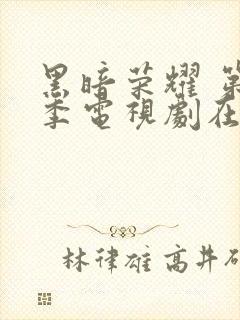 黑暗荣耀 第
季電視劇在
林律雄 高井研